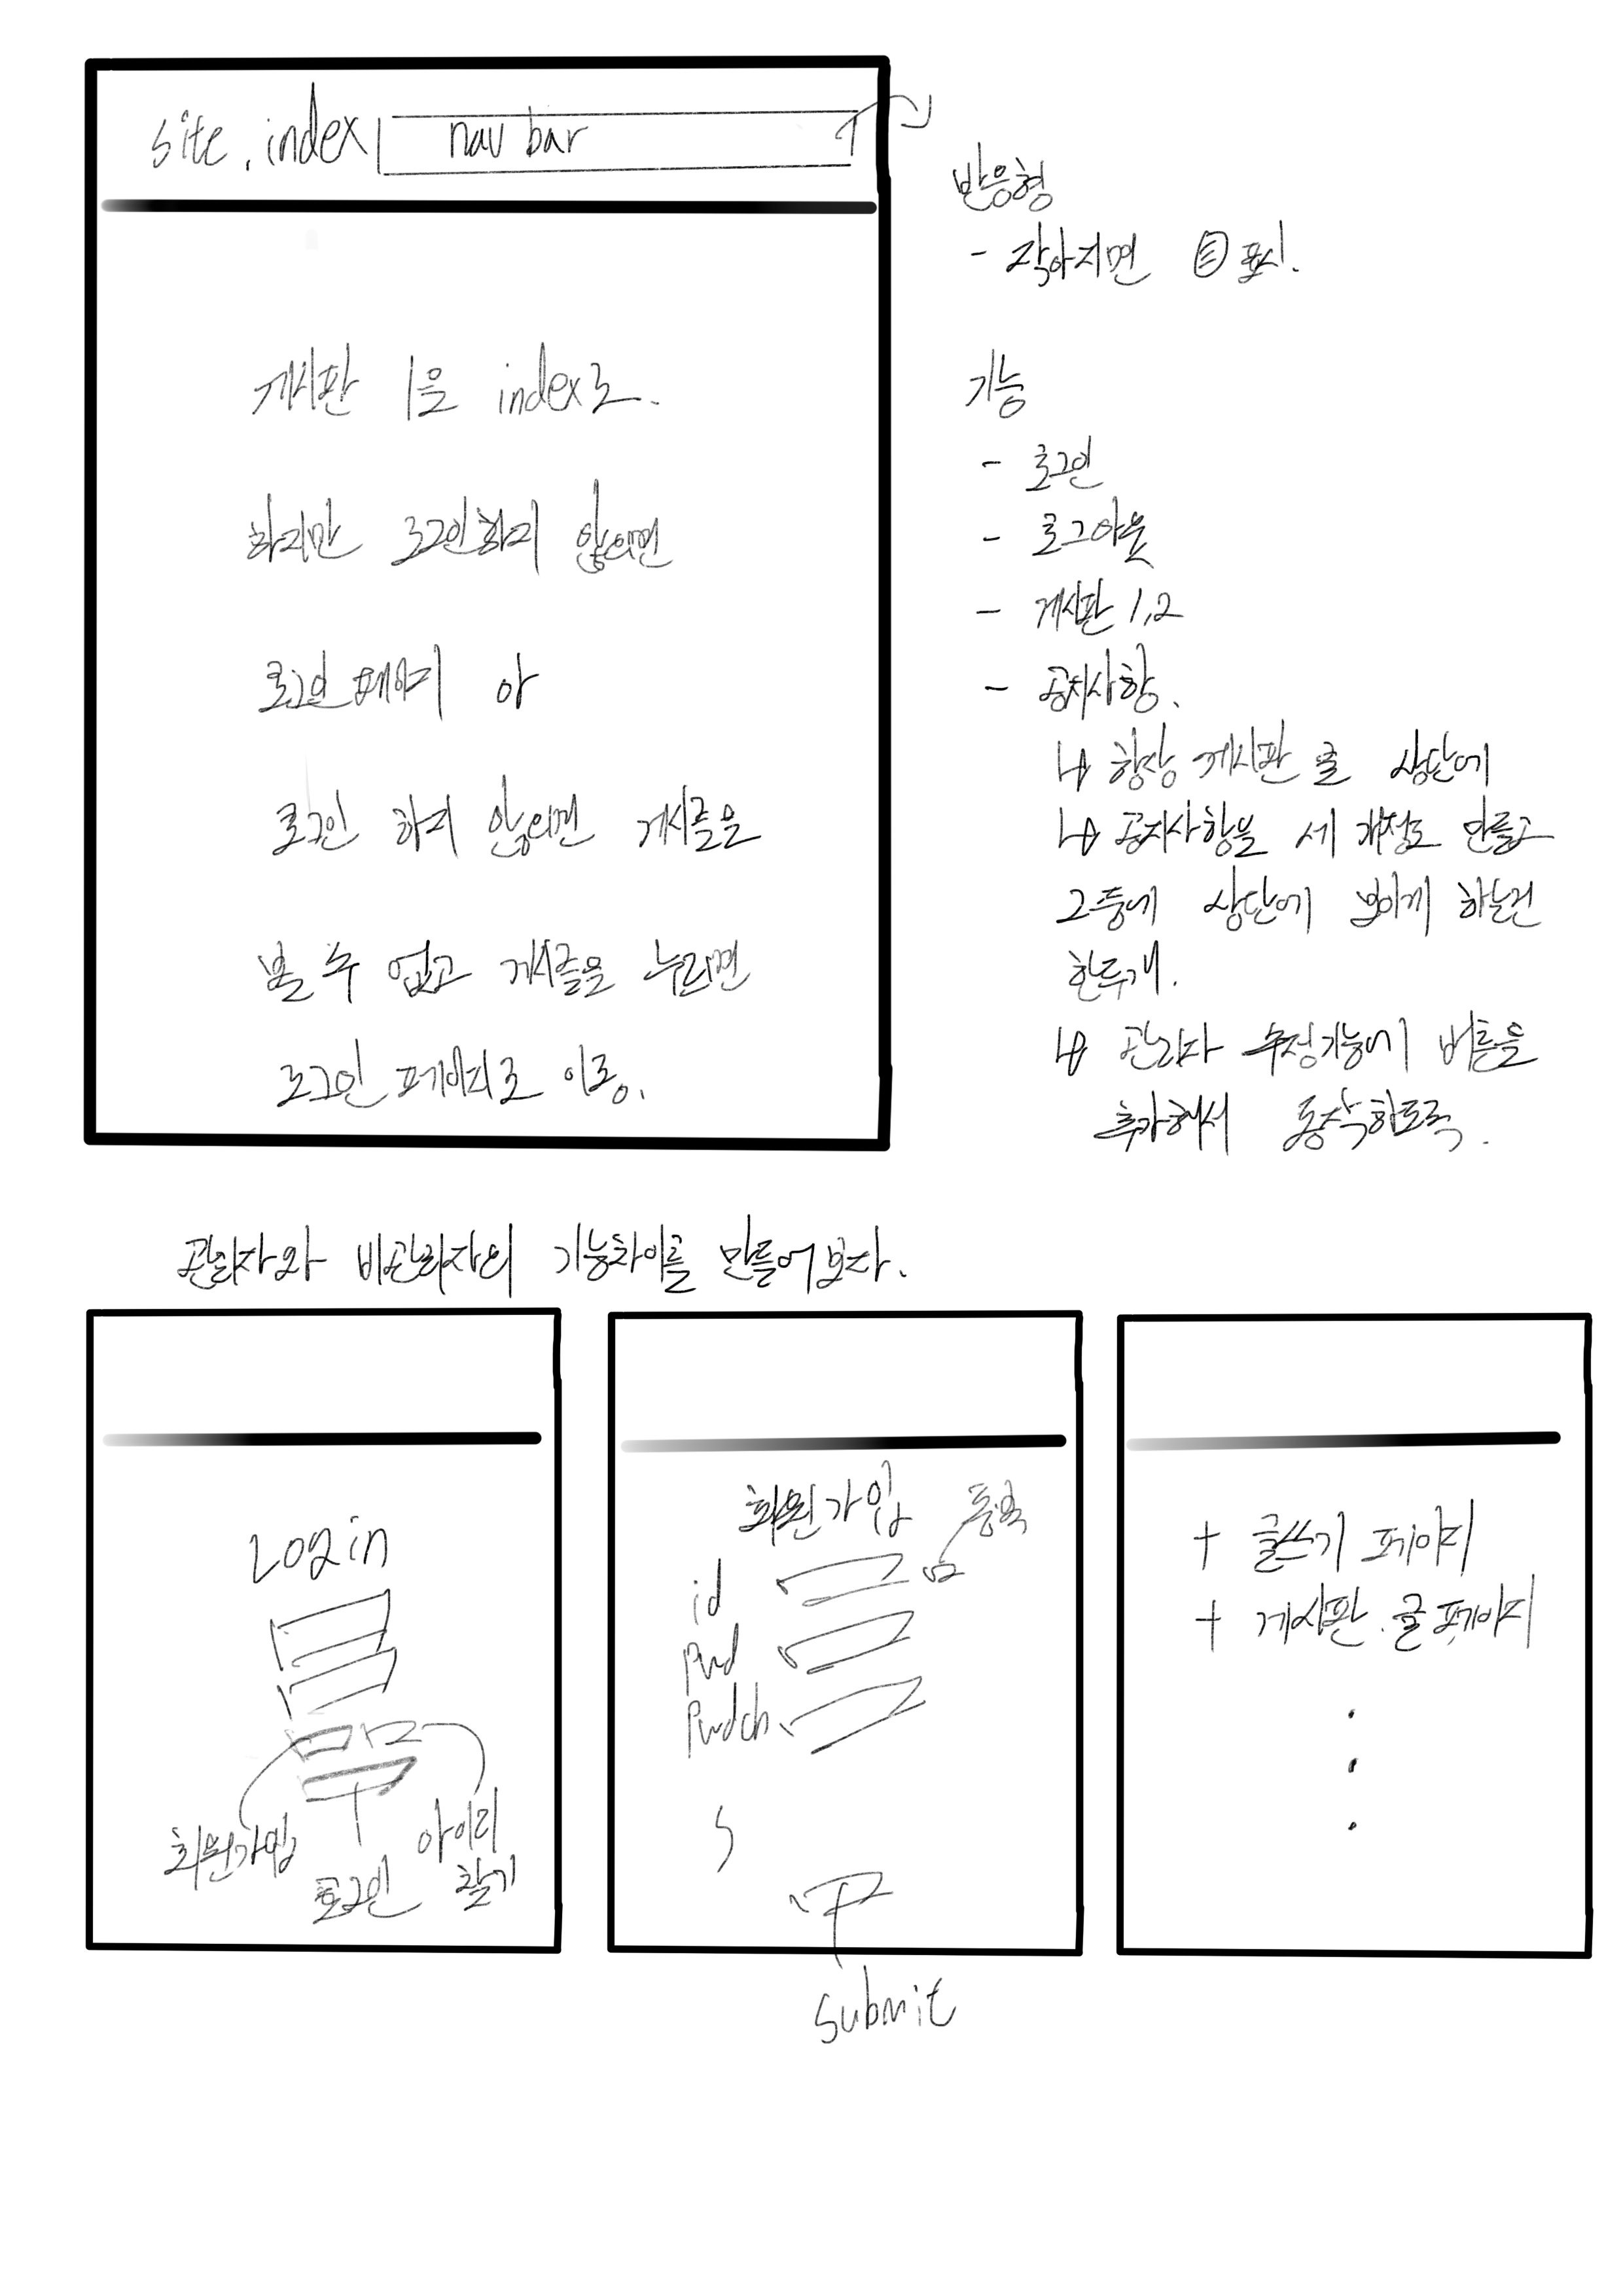 site.index
nav bar
반응형
- 작아지면 표시.
게시판 1을 index로.
하지만 로그인하지 않으면
로그인 페이지 아
로그인 하지 않으면 게시글을
볼 수 없고 게시글을 누르면
로그인 페이지로 이동.
기능
- 로그인
- 로그아웃
- 게시판 1,2
- 공지사항.
↳ 항상 게시판 글 상단에
↳ 공지사항을 세 개정도 만들고
그중에 상단에 보이게 하는건
한두개.
↳ 관리자 수정기능에 버튼을
추가해서 동작하도록.
관리자와 비관리자의 기능차이를 만들어보자.
Login
회원가입
로그인
아이디
찾기
회원가입
id
pwd
pwdch
submit
+ 글쓰기 페이지
+ 게시판.글 페이지